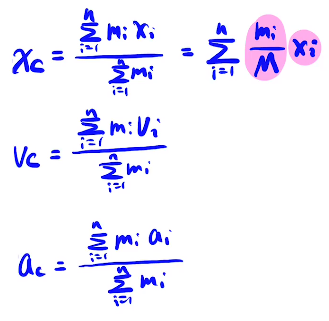 x_c = \frac{\sum_{i=1}^{n} m_i x_i}{\sum_{i=1}^{n} m_i} = \sum_{i=1}^{n} \frac{m_i}{M} x_i
v_c = \frac{\sum_{i=1}^{n} m_i v_i}{\sum_{i=1}^{n} m_i}
a_c = \frac{\sum_{i=1}^{n} m_i a_i}{\sum_{i=1}^{n} m_i}